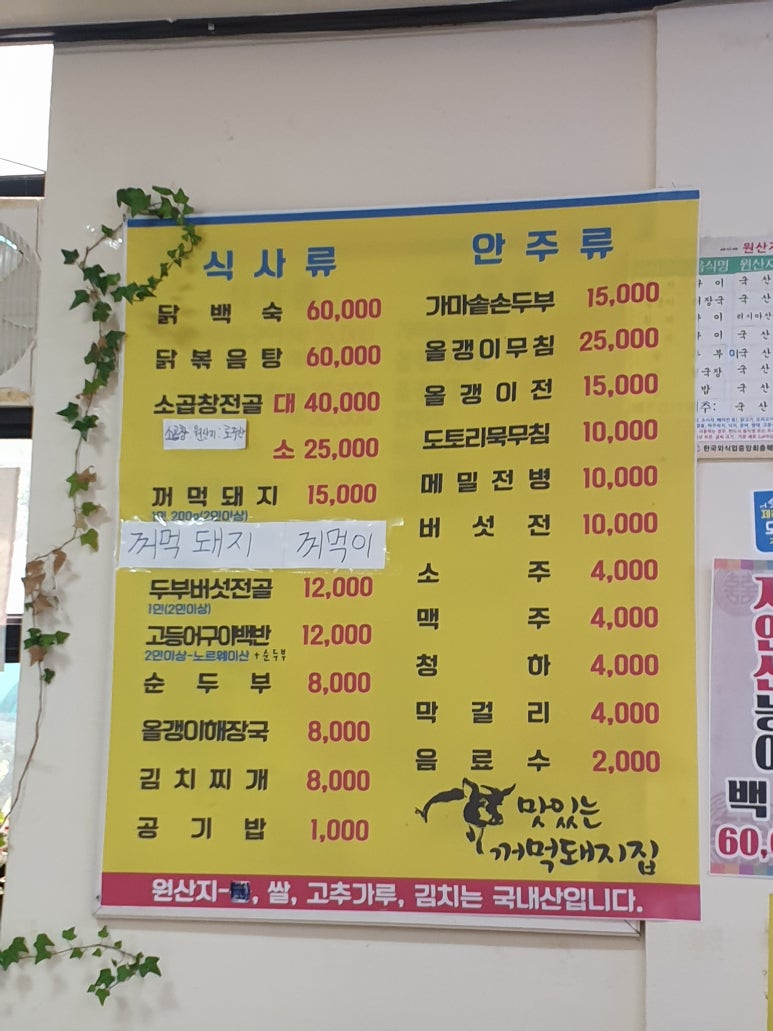 식사류
닭백숙 60,000
닭볶음탕 60,000
소곱창전골 대 40,000
소곱창 원산지 : 호주산
소 25,000
꺼먹돼지 15,000
1인 200g(2인이상)
꺼먹돼지 꺼먹이
두부버섯전골 12,000
1인(2인이상)
고등어구이백반 12,000
2인이상-노르웨이산 +순두부
순두부 8,000
올갱이해장국 8,000
김치찌개 8,000
공기밥 1,000
안주류
가마솥손두부 15,000
올갱이무침 25,000
올갱이전 15,000
도토리묵무침 10,000
메밀전병 10,000
버섯전 10,000
소주 4,000
맥주 4,000
청하 4,000
막걸리 4,000
음료수 2,000
맛있는
꺼먹돼지집
원산지- , 쌀, 고추가루, 김치는 국내산입니다.
원산지
음식명 원산지
국산
국산
러시아산
국산
미국산
국산
국산
국산
한국외식업중앙회충북
백
60,